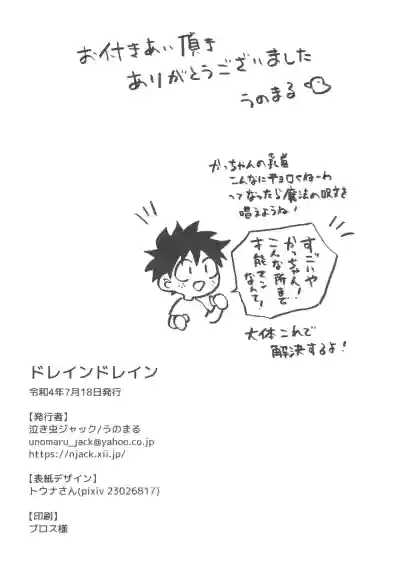 お付きあい頂き
ありがとうございました
うのまる
かっちゃんの乳首
こんなにチョロくねーわ
ってなったら魔法の呪文を
唱えようね!
すごいや
かっちゃん!
こんな所まで
才能マン
なんて!
大体これで
解決するよ!
ドレインドレイン
令和4年7月18日発行
【発行者】
泣き虫ジャック/うのまる
unomaru_jack@yahoo.co.jp
https://njack.xii.jp/
【表紙デザイン】
トウナさん(pixiv 23026817)
【印刷】
ブロス様